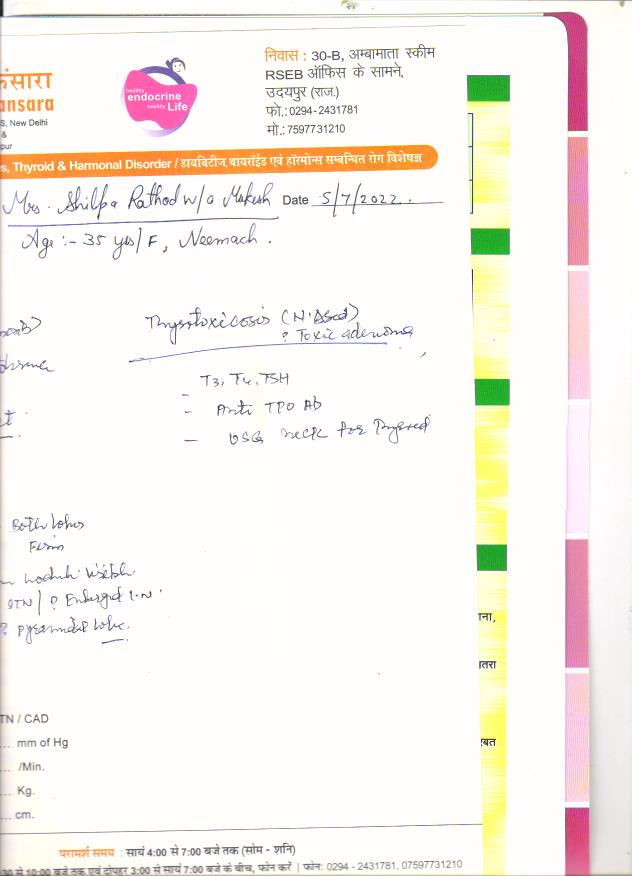 कंसारा
ansara
S, New Delhi
&
pur
healthy
endocrine
healthy Life
निवास : 30-B, अम्बामाता स्कीम
RSEB ऑफिस के सामने,
उदयपुर (राज.)
फो.:0294-2431781
मो.: 7597731210
s, Thyroid & Harmonal Disorder / डायबिटीज, थायरॉईड एवं हॉरमोन्स सम्बन्धित रोग विशेषज्ञ
Mrs. Shilpa Rathod w/o Mukesh Date 5/7/2022.
Age :- 35 yrs/F, Neemach.
Thyrotoxicosis
? Toxic adenoma
T3, T4, TSH
- Anti TPO Ab
- USG neck for Thyroid
Both lobes
Firm
nodule visible
? Enlarged L.N.
? pyramidal lobe.
TN / CAD
... mm of Hg
... /Min.
... Kg.
... cm.
ाना,
ातरा
रबत
परामर्श समय : सायं 4:00 से 7:00 बजे तक (सोम - शनि)
:30 से 10:00 बजे तक एवं दोपहर 3:00 से सायं 7:00 बजे के बीच, फोन करें | फोन: 0294 - 2431781, 07597731210